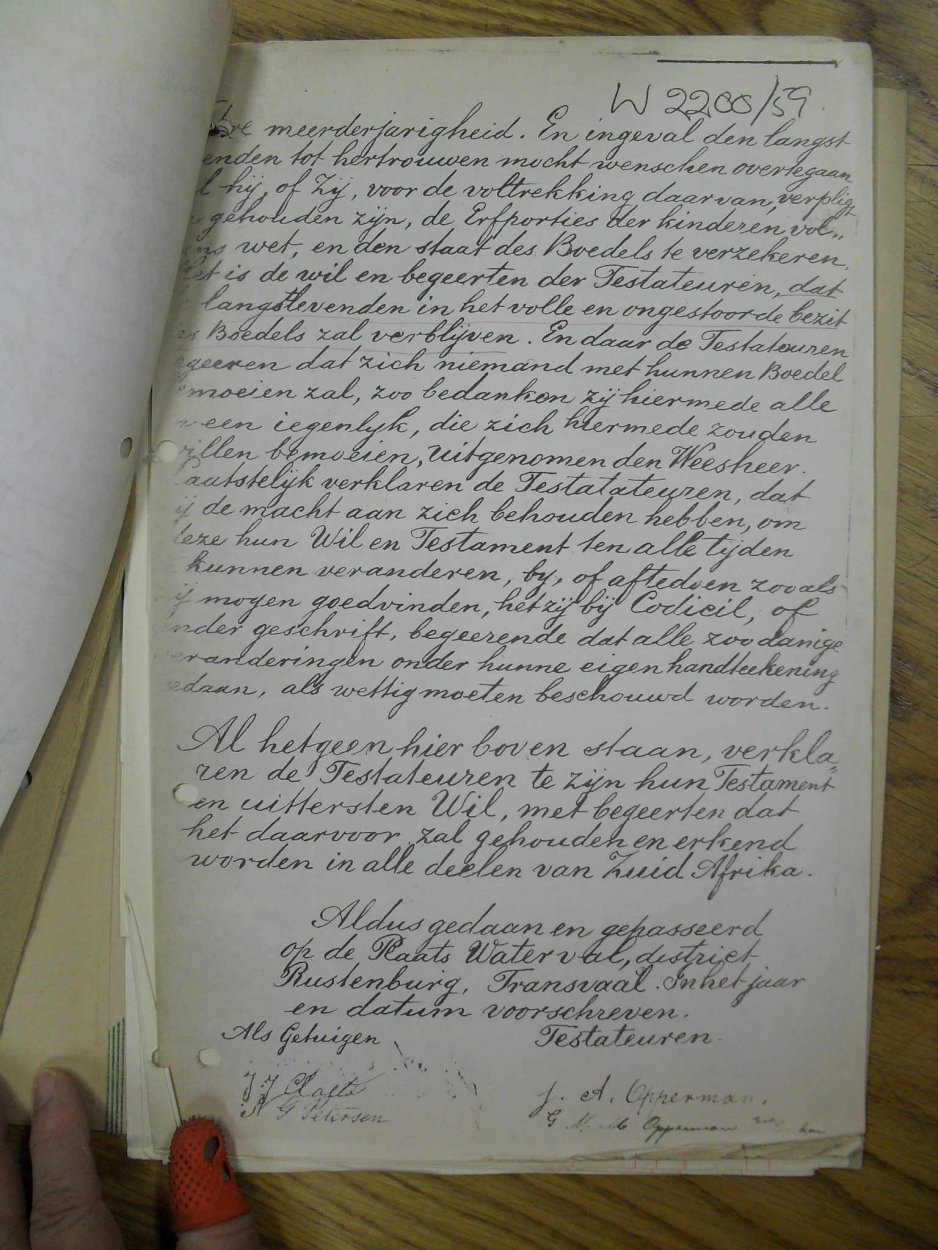 W 2200/59.
meerderjarigheid. En ingeval den langst
enden tot hertrouwen mocht wenschen overtegaan
l hij, of Zij, voor de voltrekking daarvan, verpligt
gehouden zijn, de Erfporties der kinderen vol„
ens wet, en den staat des Boedels te verzekeren.
et is de wil en begeerten der Testateuren, dat
langstlevenden in het volle en ongestoorde bezit
s Boedels zal verblijven. En daar de Testateuren
geeren dat zich niemand met hunnen Boedel
moeien zal, zoo bedanken zij hiermede alle
een iegenlyk, die zich hiermede zouden
illen bemoeien, uitgenomen den Weesheer.
aatstelijk verklaren de Testatateuren, dat
ij de macht aan zich behouden hebben, om
deze hun Wil en Testament ten alle tijden
kunnen veranderen, by, of aftedoen zooals
ij mogen goedvinden, hetzij bij Codicil, of
nder geschrift, begeerende dat alle zoodanige
eranderingen onder hunne eigen handteekening
edaan, als wettig moeten beschouwd worden.
Al hetgeen hier boven staan, verkla„
ren de Testateuren te zijn hun Testament
en uittersten Wil, met begeerten dat
het daarvoor zal gehouden en erkend
worden in alle deelen van Zuid Afrika.
Aldus gedaan en gepasseerd
op de Plaats Waterval, district
Rustenburg, Transvaal. In het jaar
en datum voorschreven.
Als Getuigen Testateuren.
J J J. A. Opperman.
G Petersen G Opperman